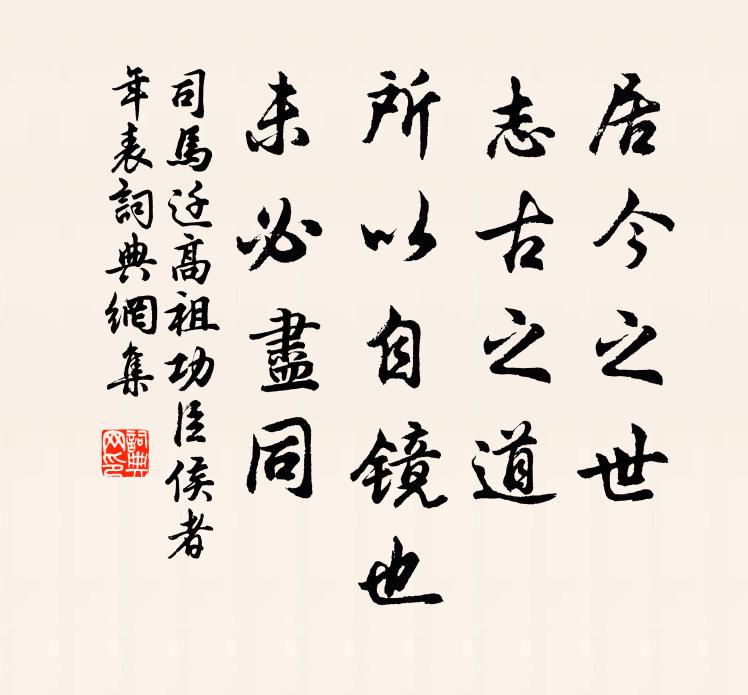 居今之世
志古之道
所以自镜也
未必盡同
司馬迁高祖功臣侯者
年表詞典網集
詞典
网印